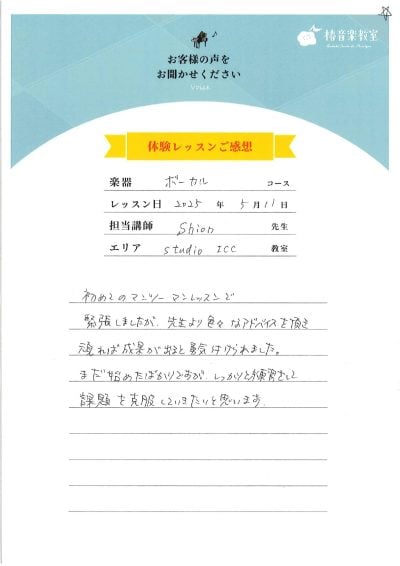 椿音楽教室
お客様の声を
お聞かせください
Voice
体験レッスンご感想
楽器 ボーカル コース
レッスン日 2025 年 5月11日
担当講師 Shion 先生
エリア studio ICC 教室
初めてのマンツーマンレッスンで
緊張しましたが、先生より色々なアドバイスを頂き
頑れば成果が出ると勇気付けられました。
まだ始めたばかりですが、しっかりと練習をして
課題を克服していきたいと思います。